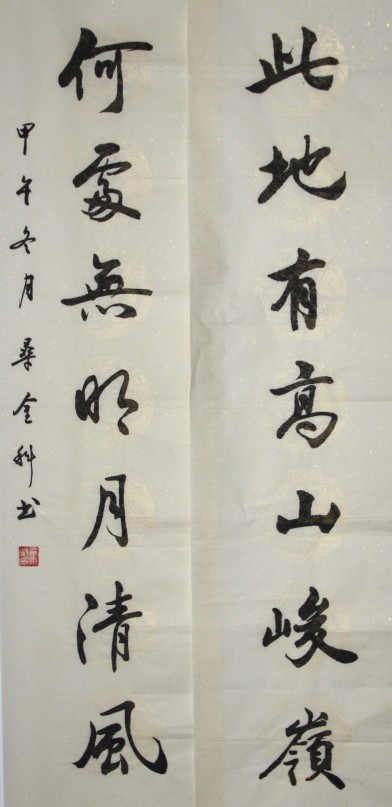 此地有高山峻嶺
何處無明月清風
甲午冬月桑金科书